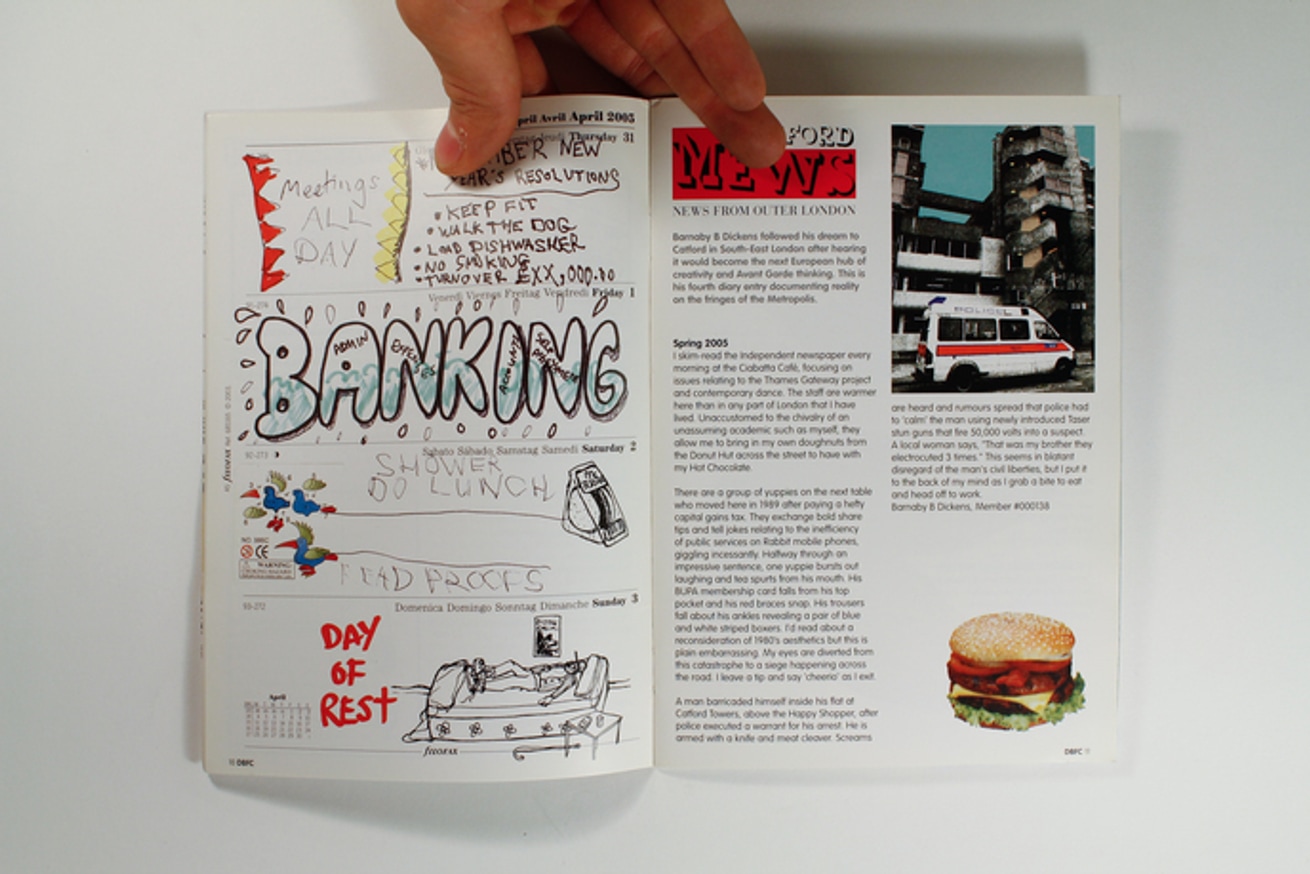 April Avril April 2005
Jeudi Thursday 31
Meetings
ALL
DAY
NEW
YEAR'S RESOLUTIONS
• KEEP FIT
• WALK THE DOG
• LOAD DISHWASHER
• NO SMOKING
• TURNOVER £XX,000.00
Venerdi Viernes Freitag Vendredi Friday 1
BANKING
ADMIN
EXPENSES
ACCOUNTS
Sabato Sábado Samstag Samedi Saturday 2
92-273
SHOWER
DO LUNCH
READ PROOFS
WARNING
Domenica Domingo Sonntag Dimanche Sunday 3
93-272
DAY
OF
REST
April
filofax
10 DBFC
FORD
MEWS
NEWS FROM OUTER LONDON
Barnaby B Dickens followed his dream to
Catford in South-East London after hearing
it would become the next European hub of
creativity and Avant Garde thinking. This is
his fourth diary entry documenting reality
on the fringes of the Metropolis.
Spring 2005
I skim-read the Independent newspaper every
morning at the Ciabatta Café, focusing on
issues relating to the Thames Gateway project
and contemporary dance. The staff are warmer
here than in any part of London that I have
lived. Unaccustomed to the chivalry of an
unassuming academic such as myself, they
allow me to bring in my own doughnuts from
the Donut Hut across the street to have with
my Hot Chocolate.
There are a group of yuppies on the next table
who moved here in 1989 after paying a hefty
capital gains tax. They exchange bold share
tips and tell jokes relating to the inefficiency
of public services on Rabbit mobile phones,
giggling incessantly. Halfway through an
impressive sentence, one yuppie bursts out
laughing and tea spurts from his mouth. His
BUPA membership card falls from his top
pocket and his red braces snap. His trousers
fall about his ankles revealing a pair of blue
and white striped boxers. I'd read about a
reconsideration of 1980's aesthetics but this is
plain embarrassing. My eyes are diverted from
this catastrophe to a siege happening across
the road. I leave a tip and say 'cheerio' as I exit.
A man barricaded himself inside his flat at
Catford Towers, above the Happy Shopper, after
police executed a warrant for his arrest. He is
armed with a knife and meat cleaver. Screams
POLICE
are heard and rumours spread that police had
to 'calm' the man using newly introduced Taser
stun guns that fire 50,000 volts into a suspect.
A local woman says, "That was my brother they
electrocuted 3 times." This seems in blatant
disregard of the man's civil liberties, but I put it
to the back of my mind as I grab a bite to eat
and head off to work.
Barnaby B Dickens, Member #000138
DBFC 11